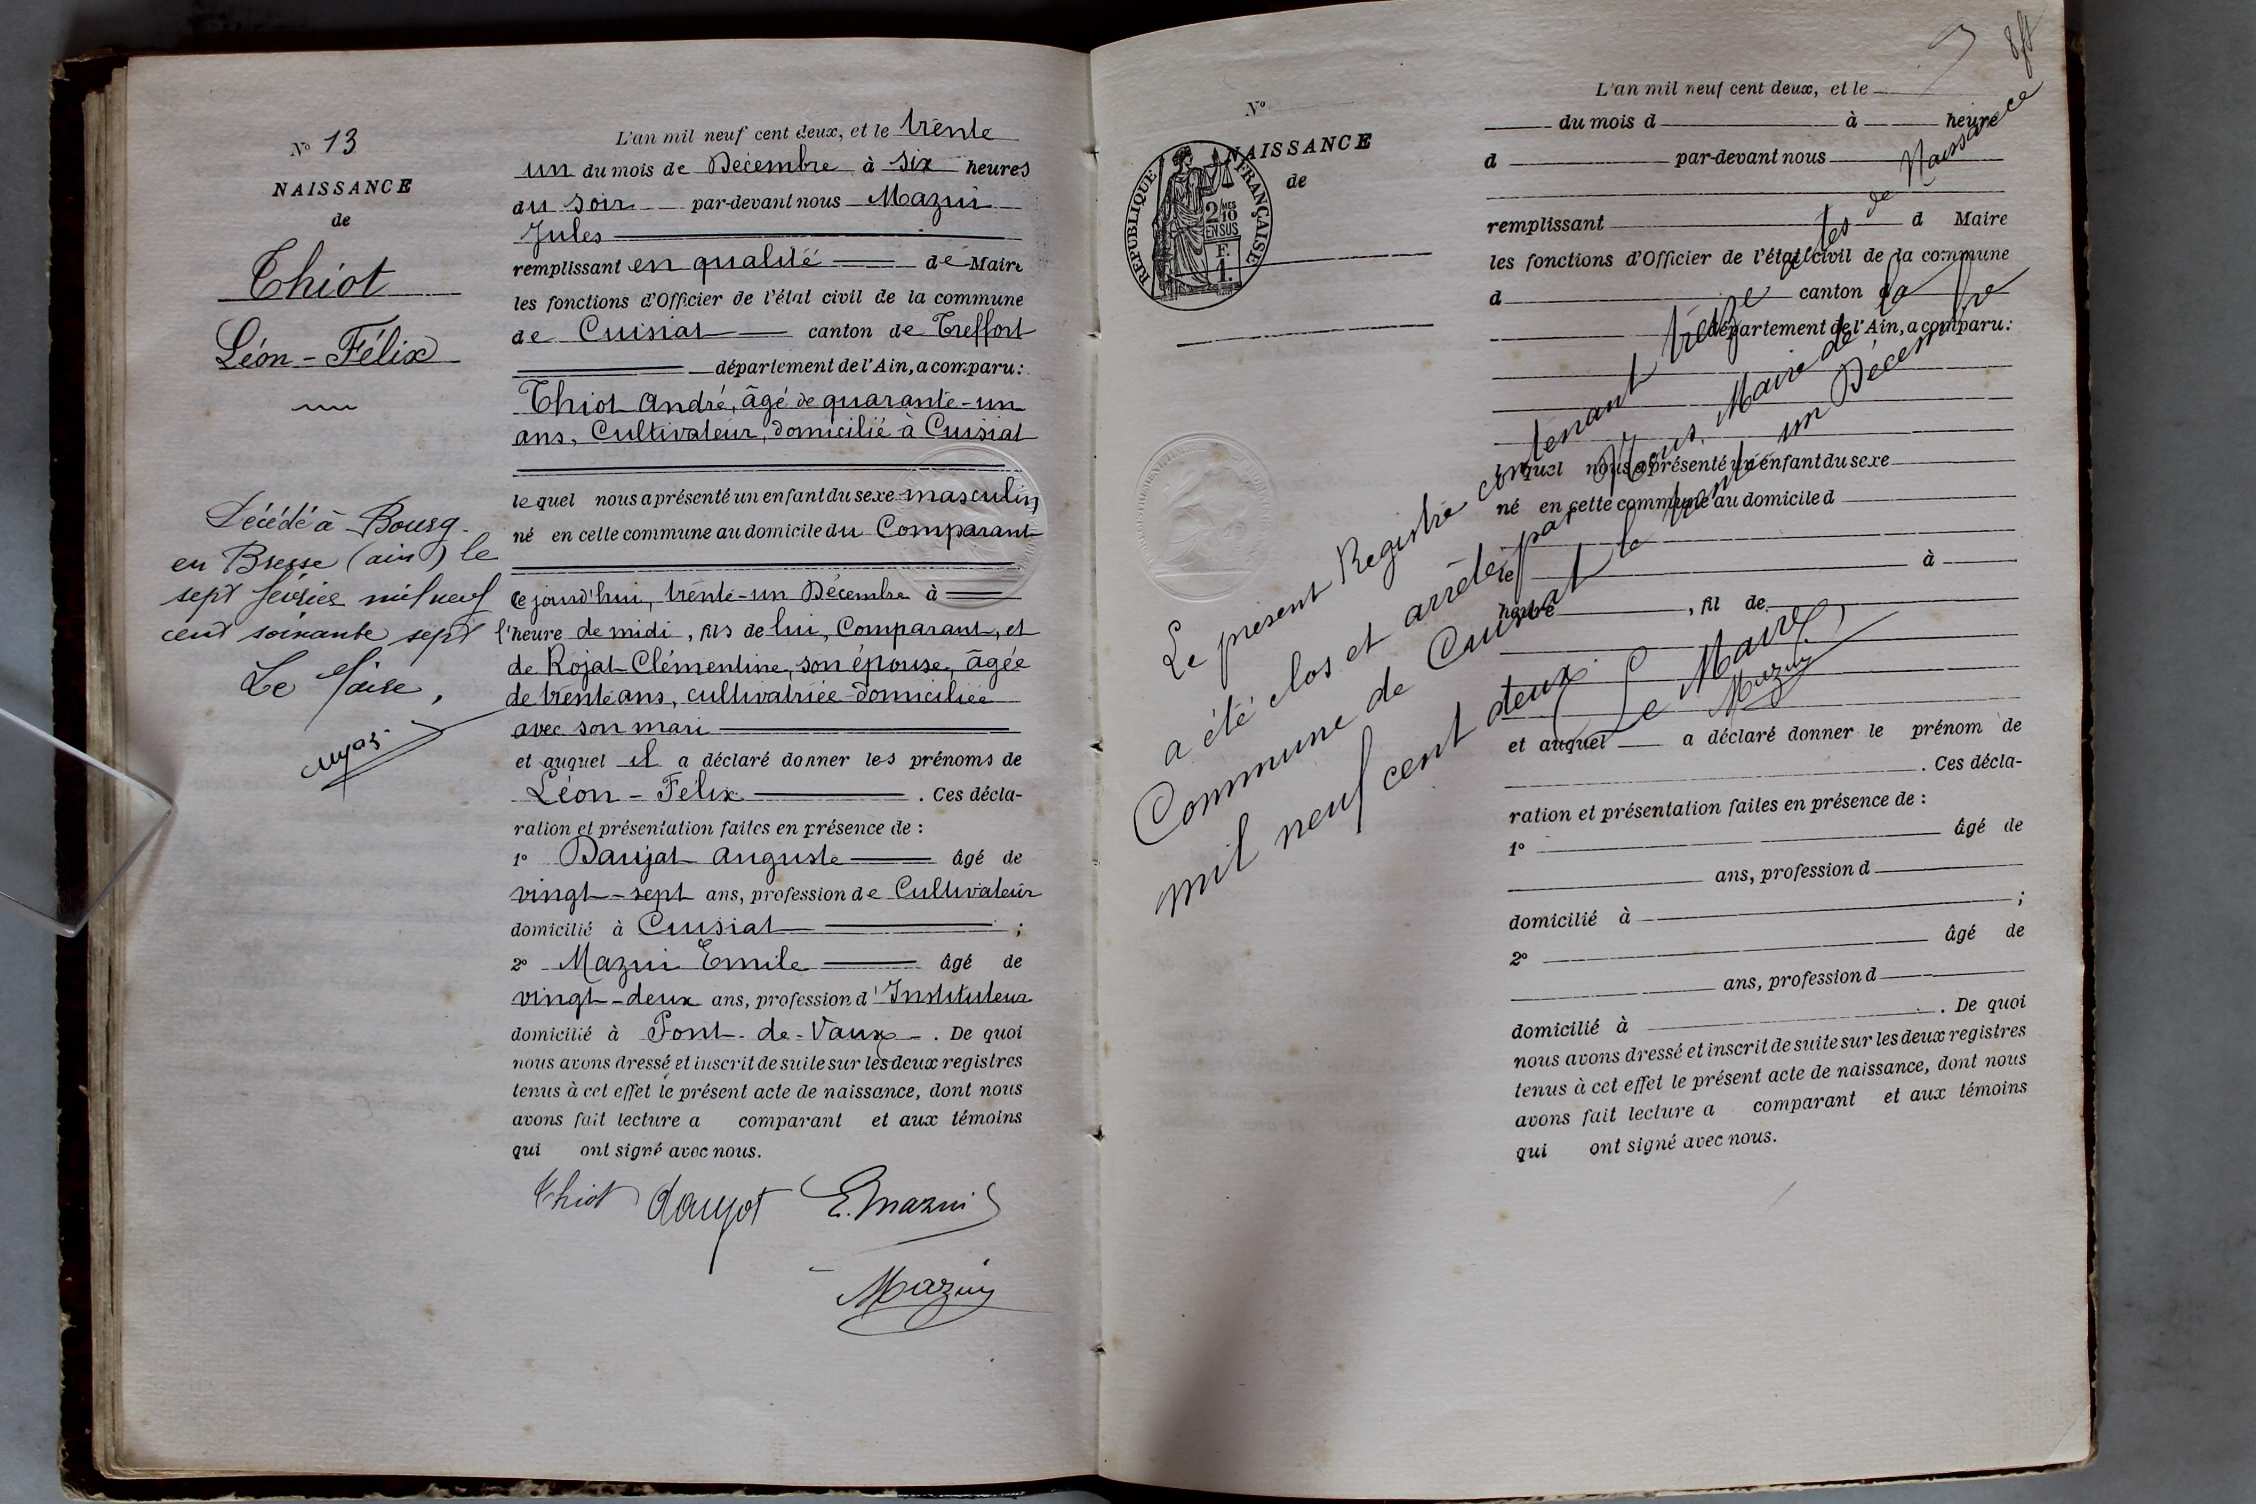 N° 13
NAISSANCE
de
Thiot
Léon-Félix
Décédé à Bourg-
en Bresse (ain) le
sept février mil neuf
cent soixante sept
Le Maire,
L'an mil neuf cent deux, et le trente
un du mois de Décembre à six heures
du soir par-devant nous Mazui
Jules
remplissant en qualité de Maire
les fonctions d'Officier de l'état civil de la commune
de Cuisiat canton de Treffort
département de l'Ain, a comparu:
Thiot André, âgé de quarante-un
ans, Cultivateur, domicilié à Cuisiat
lequel nous a présenté un enfant du sexe masculin,
né en cette commune au domicile du Comparant
Ce jourd'hui, trente-un Décembre à
l'heure de midi, fils de lui, Comparant, et
de Rojat Clémentine, son épouse, âgée
de trente ans, cultivatrice domiciliée
avec son mari
et auquel il a déclaré donner les prénoms de
Léon-Félix. Ces décla-
ration et présentation faites en présence de :
1° Daujat Auguste âgé de
vingt-sept ans, profession de Cultivateur
domicilié à Cuisiat ;
2° Mazui Emile âgé de
vingt-deux ans, profession d'Instituteur
domicilié à Pont-de-Vaux. De quoi
nous avons dressé et inscrit de suite sur les deux registres
tenus à cet effet le présent acte de naissance, dont nous
avons fait lecture a comparant et aux témoins
qui ont signé avec nous.
Thiot daujat E. Mazui
Mazui
N°
NAISSANCE
de
RÉPUBLIQUE FRANÇAISE
2/10 MES
EN SUS
F.
1.
L'an mil neuf cent deux, et le
du mois d à heure
d par-devant nous
remplissant d Maire
les fonctions d'Officier de l'état civil de la commune
d canton d
département de l'Ain, a comparu:
quel nous a présenté un enfant du sexe
né en cette commune au domicile d
le à
heure , fil de
et auquel a déclaré donner le prénom de
. Ces décla-
ration et présentation faites en présence de :
1° âgé de
ans, profession d
domicilié à ;
2° âgé de
ans, profession d
domicilié à . De quoi
nous avons dressé et inscrit de suite sur les deux registres
tenus à cet effet le présent acte de naissance, dont nous
avons fait lecture a comparant et aux témoins
qui ont signé avec nous.
Le présent Registre contenant treize actes de Naissance
a été clos et arrêté par Nous, Maire de la
Commune de Cuisiat le trente un Décembre
mil neuf cent deux.
Le Maire,
Mazui